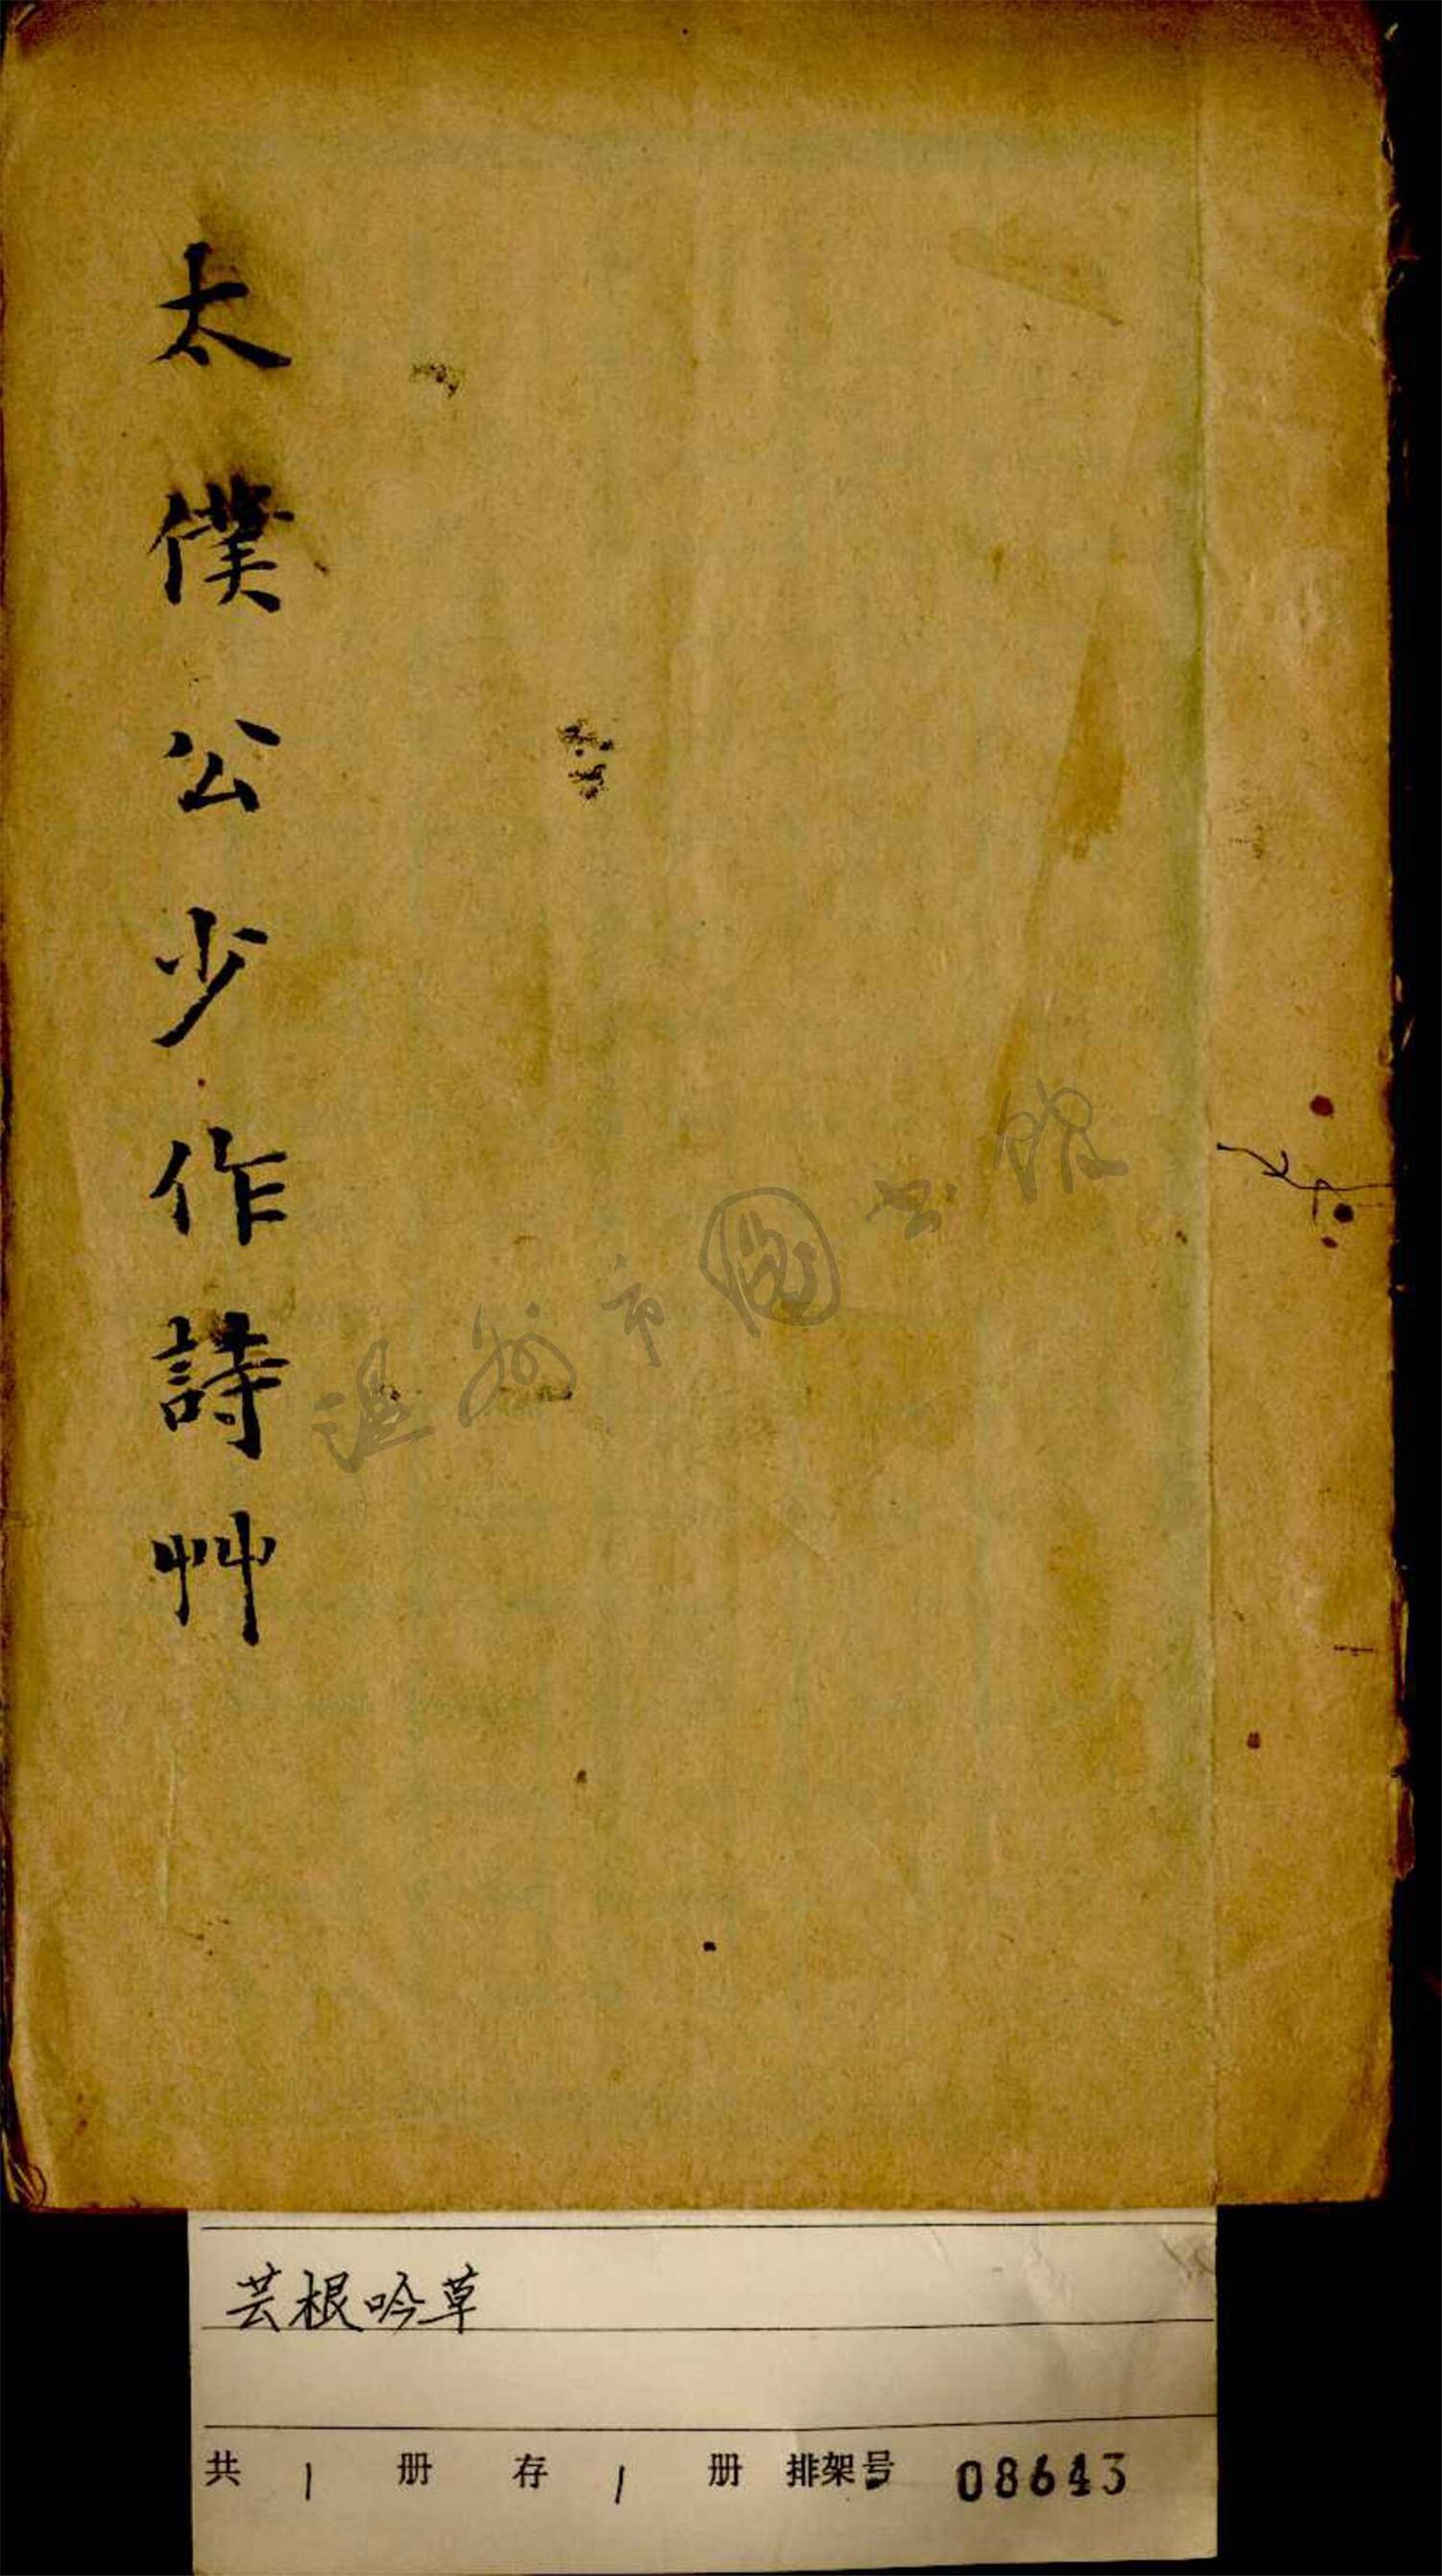 太僕公少作詩艸
温州市圖书馆
芸根吟草
共 1 册 存 1 册 排架号 08643